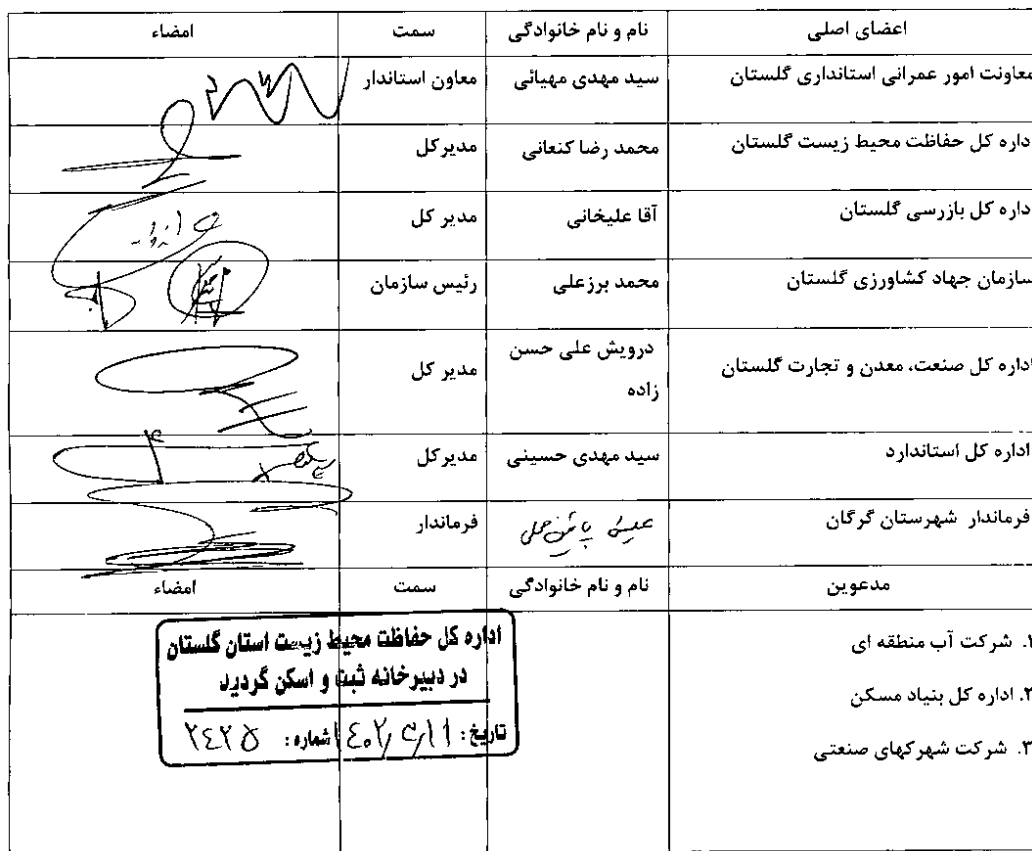 اعضای اصلی نام و نام خانوادگی سمت امضاء
معاونت امور عمرانی استانداری گلستان سید مهدی مهیائی معاون استاندار
داره کل حفاظت محیط زیست گلستان محمد رضا کنعانی مدیرکل
داره کل بازرسی گلستان آقا علیخانی مدیر کل
سازمان جهاد کشاورزی گلستان محمد برزعلی رئیس سازمان
اداره کل صنعت، معدن و تجارت گلستان درویش علی حسن مدیر کل
زاده
اداره کل استاندارد سید مهدی حسینی مدیرکل
فرماندار شهرستان گرگان فرماندار
مدعوین نام و نام خانوادگی سمت امضاء
۱. شرکت آب منطقه ای
۲. اداره کل بنیاد مسکن
۳. شرکت شهرکهای صنعتی
اداره کل حفاظت محیط زیست استان گلستان
در دبیرخانه ثبت و اسکن گردید
تاریخ: شماره: ۲۴۲۵